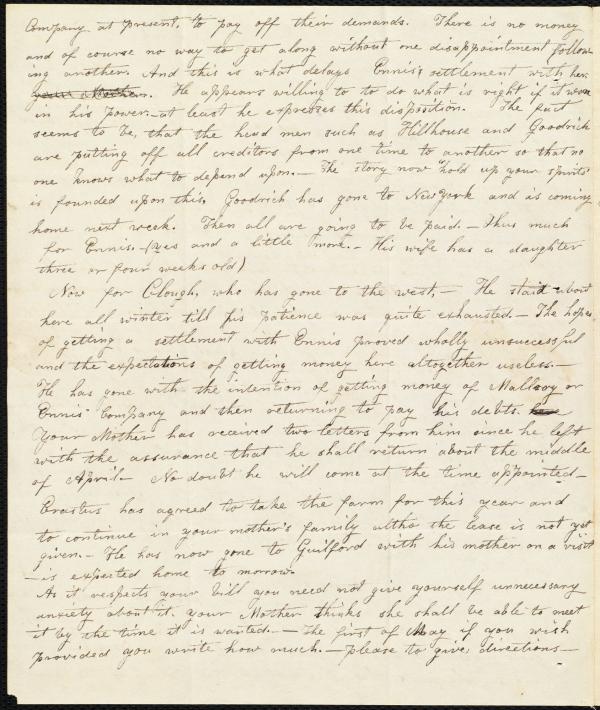 Company at present, to pay off their demands. There is no money
and of course no way to get along without one disappointment follow-
ing another. And this is what delays Ennis, settlement with her.
your Mother. He appears willing to to do what is right if it were
in his power.— at least he expresses this disposition. The fact
seems to be, that the head men such as Hillhouse and Goodrich
are putting off all creditors from one time to another so that no
one knows what to depend upon.— The story now "hold up your spirits"
is founded upon this, Goodrich has gone to New York and is coming
home next week. Then all are going to be paid.— Thus much
for Ennis.— (yes and a little more.— His wife has a daughter
three or four weeks old)
Now for Clough, who has gone to the west,— He staid about
here all winter till his patience was quite exhausted.— The hopes
of getting a settlement with Ennis proved wholly unsuccessful
and the expectations of getting money here altogether useless.—
He has gone with the intention of getting money of Mallory or
Ennis' Company and then returning to pay his debts.
Your Mother has received two letters from him since he left
with the assurance that he shall return about the middle
of April.— No doubt he will come at the time appointed—
Erastus has agreed to take the farm for this year and
to continue in your mother's family altho the lease is not yet
given.— He has now gone to Guilford with his mother on a visit
—is expected home to morrow.
As it respects your bill you need not give yourself unnecessary
anxiety about it. your Mother thinks she shall be able to meet
it by the time it is wanted.— The first of May if you wish
provided you write how much.— please to give, directions—